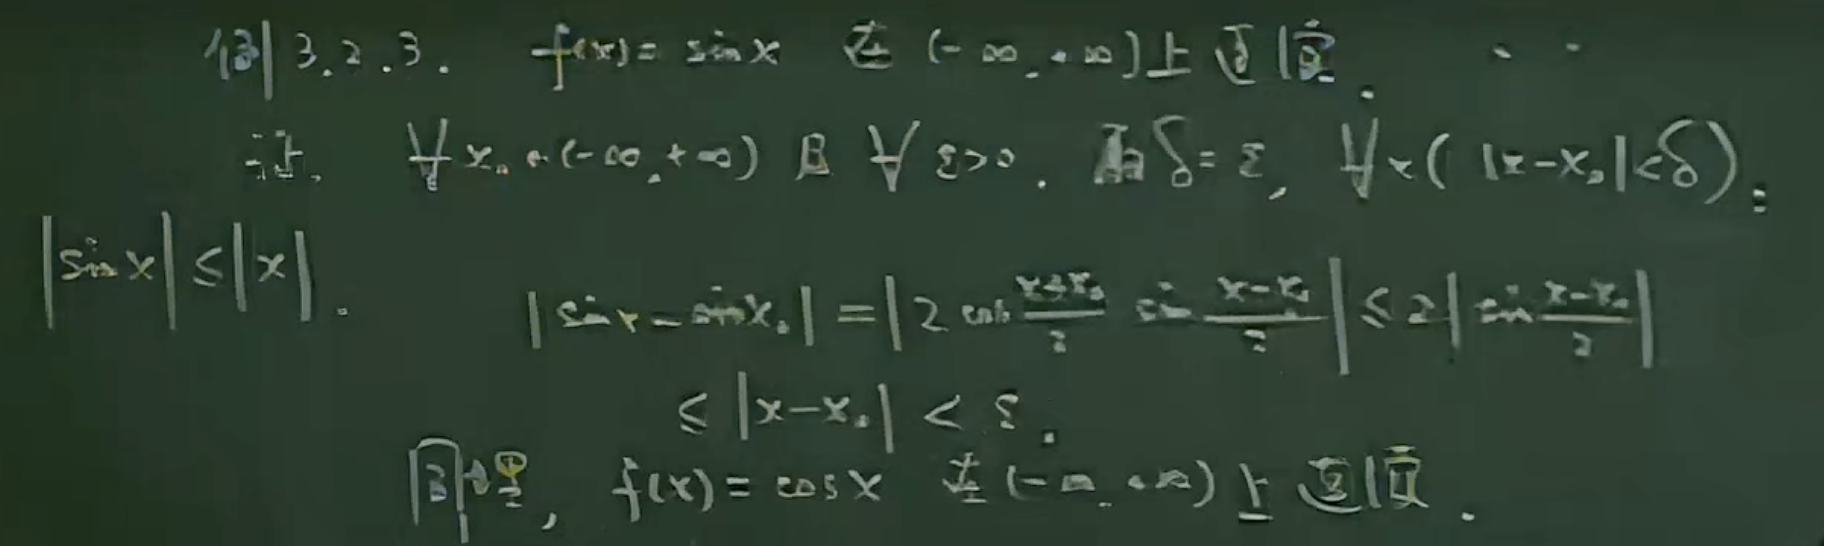 例 3.2.3. f(x) = sin x 在 (-∞, +∞) 上连续.
证. ∀ x₀ ∈ (-∞, +∞) 及 ∀ ε>0. 取 δ = ε, ∀x ( |x-x₀| < δ ):
|sin x| ≤ |x|.
|sin x - sin x₀| = |2 cos (x+x₀)/2 sin (x-x₀)/2| ≤ 2 |sin (x-x₀)/2|
≤ |x-x₀| < ε.
同理, f(x) = cos x 在 (-∞, +∞) 上连续.